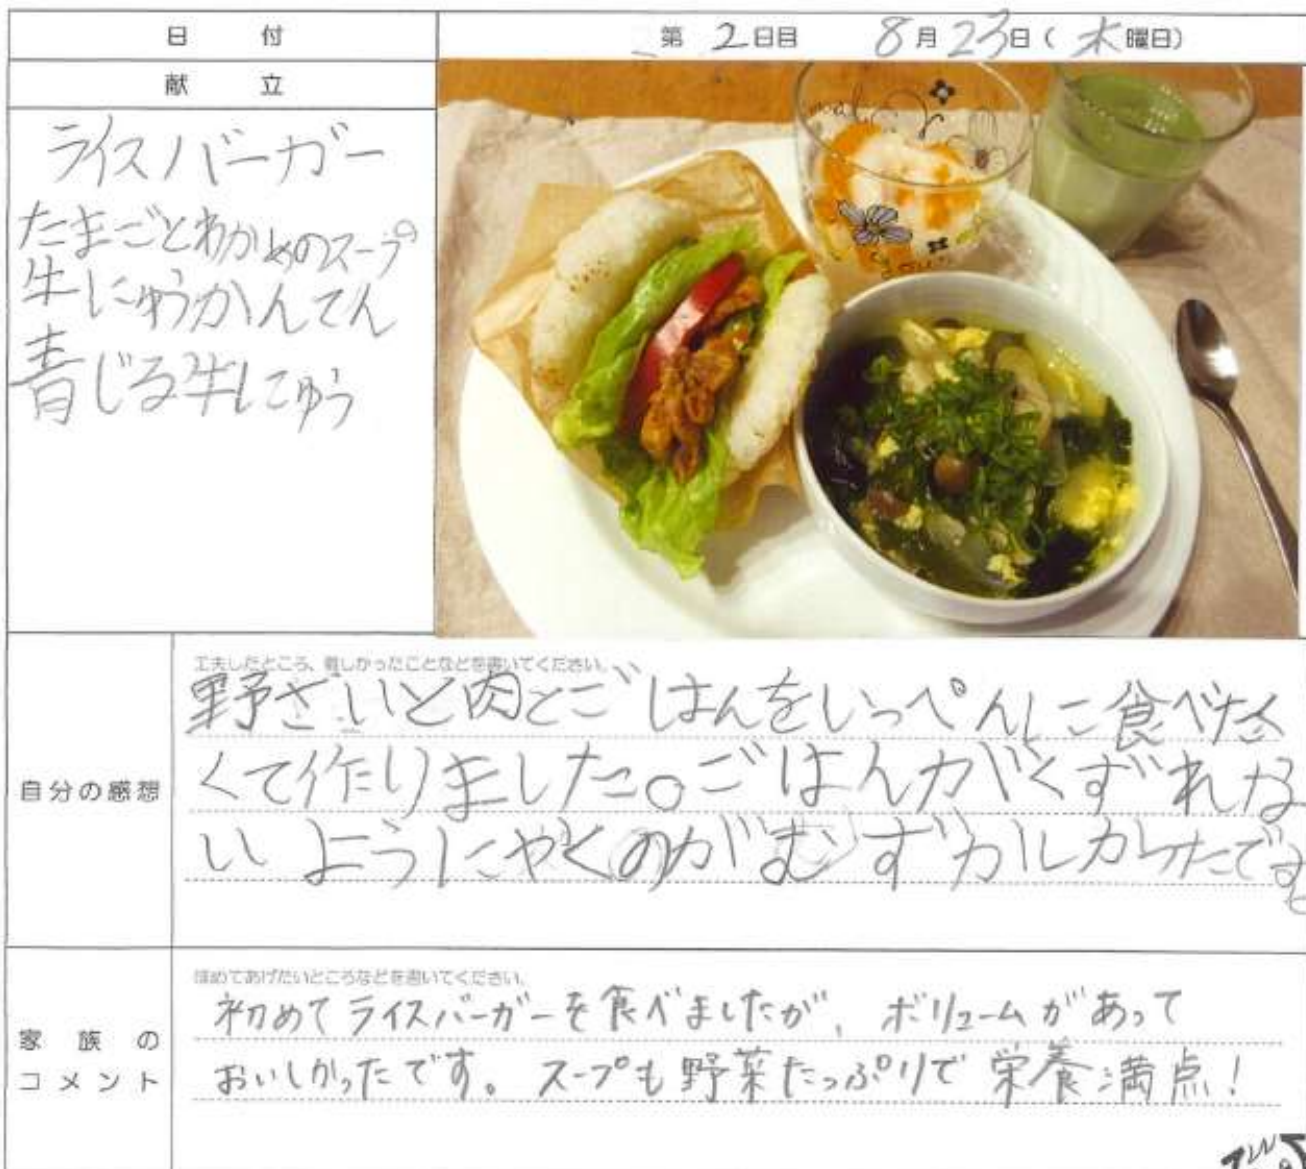 日付
第2日目 8月23日(木曜日)
献立
ライスバーガー
たまごとわかめのスープ
牛にゅうかんてん
青じる牛にゅう
自分の感想
工夫したところ、難しかったことなどを書いてください。
野さいと肉とごはんをいっぺんに食べた
くて作りました。ごはんがくずれな
いようにやくのがむずかしかったです。
家族の
コメント
ほめてあげたいところなどを書いてください。
初めてライスバーガーを食べましたが、ボリュームがあって
おいしかったです。スープも野菜たっぷりで栄養満点!